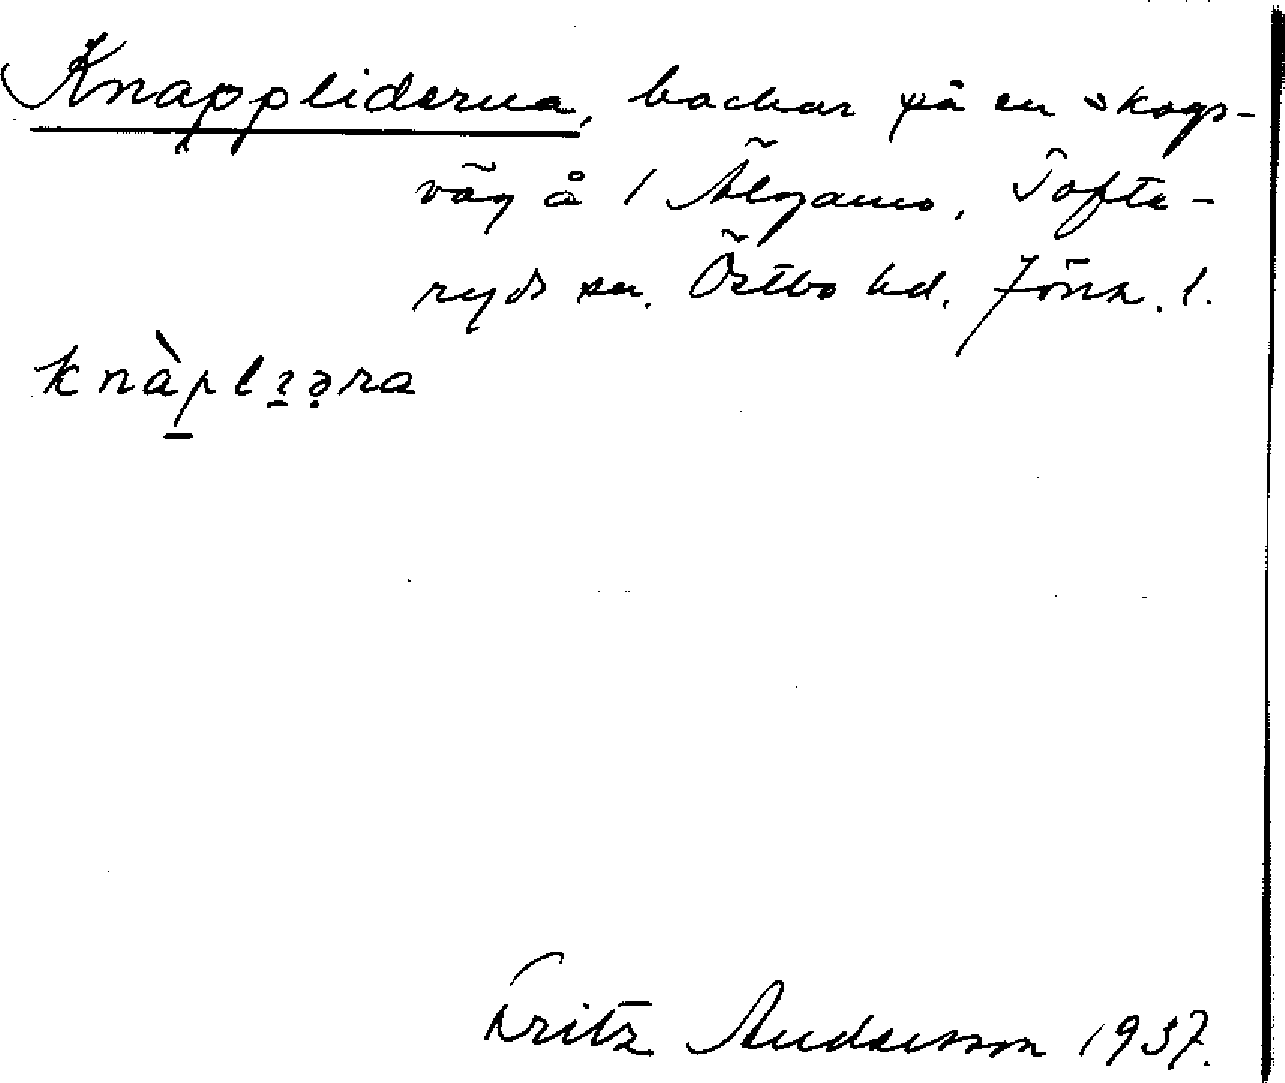 Knappliderna, backar på en skogs-
väg å 1 Älganäs, Tofte-
ryds sn. Östbo hd. Jönk. l.
knàpl əra
Fritz Andersson 1937.